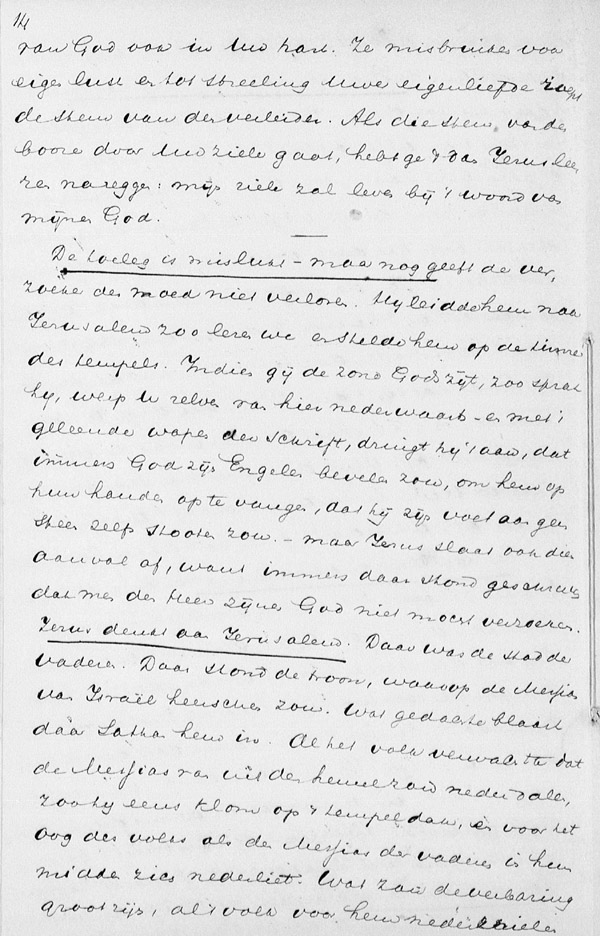 14
van God ook in Uw hart. Ze misbruiken voor
eigen lust en tot streeling Uwe eigenliefde zegt
de stem van den verleider. Als die stem van den
booze door Uw ziele gaat, hebt ge 't dan Jezus leer
ren nazeggen: mijn ziele zal leven bij 't woord van
mijnen God.
De toeleg is mislukt – maar nog geeft de ver,
zoeker den moed niet verloren. Hy leidde hem naar
Jerusalem zoo lezen we en stelde hem op de tinne
des tempels. Indien gij de zone Gods zijt, zoo sprak
hy, werp U zelven van hier nederwaarts – en met 't
geleende wapen der schrift, dringt hij 't aan, dat
immers God zijn Engelen bevelen zou, om hem op
hun handen op te vangen, dat hij zijn voet aan geen
steen zelfs stooten zou. – maar Jezus slaat ook dien
aanval af, want immers daar stond geschreven
dat men den Heer zijnen God niet mocht verzoeken.
Jezus denkt aan Jerusalem. Daar was de stad der
vaderen. Daar stond de troon, waarop de Messias
van Israël heerschen zou. Wat gedachte blaast
daar Sathan hem in. Al het volk verwachtte dat
de Messias van uit den hemel zou nederdalen,
zoo hy eens klom op 't tempeldak, en voor het
oog des volks als de Messias der vaderen in hun
midden zich nederliet. Wat zou de verbazing
groot zijn, als 't volk voor hem nederknielen